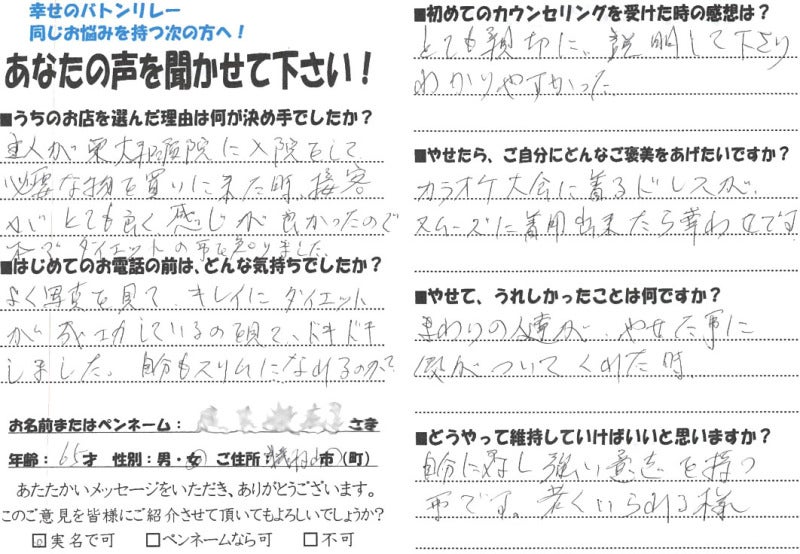 幸せのバトンリレー
同じお悩みを持つ次の方へ!
あなたの声を聞かせて下さい!
■うちのお店を選んだ理由は何が決め手でしたか?
主人が東大和病院に入院をして
必要な物を買いに来た時、接客
がとても良く感じが良かったので
ダイエットの事を知りました
■はじめてのお電話の前は、どんな気持ちでしたか?
よく写真を見て、キレイにダイエット
が成功しているのを見て、ドキドキ
しました。自分もスリムになれるのかで
お名前またはペンネーム: さま
年齢:65才 性別:男・女 ご住所: 市(町)
あたたかいメッセージをいただき、ありがとうございます。
このご意見を皆様にご紹介させて頂いてもよろしいでしょうか?
☑実名で可 □ペンネームなら可 □不可
■初めてのカウンセリングを受けた時の感想は?
とても親切に、説明して下さり
わかりやすかった
■やせたら、ご自分にどんなご褒美をあげたいですか?
カラオケ大会に着るドレスが、
スムーズに着用出来たら幸わせです
■やせて、うれしかったことは何ですか?
まわりの人達が、やせた事に
気がついてくれた時
■どうやって維持していけばいいと思いますか?
自分に対し強い意志を持つ
事です。若くいられる様